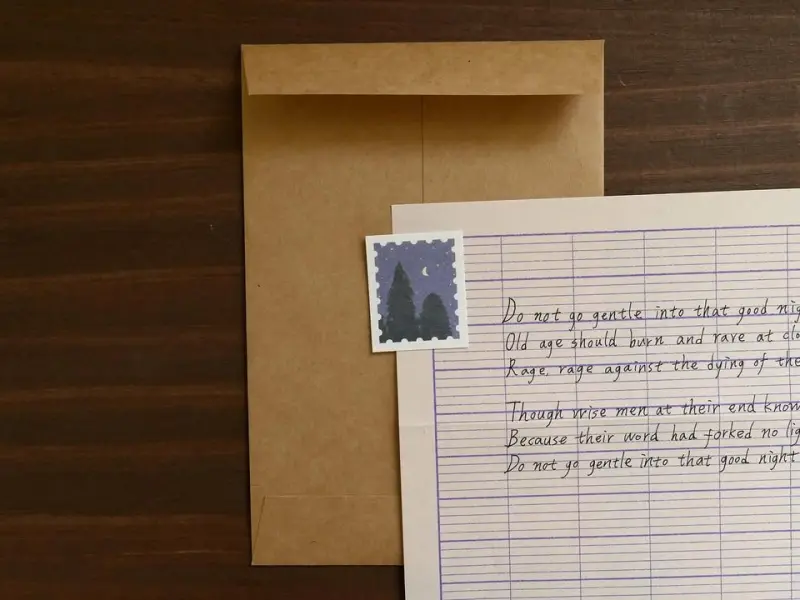 Do not go gentle into that good nig
Old age should burn and rave at clo
Rage, rage against the dying of the
Though wise men at their end know
Because their word had forked no lig
Do not go gentle into that good night